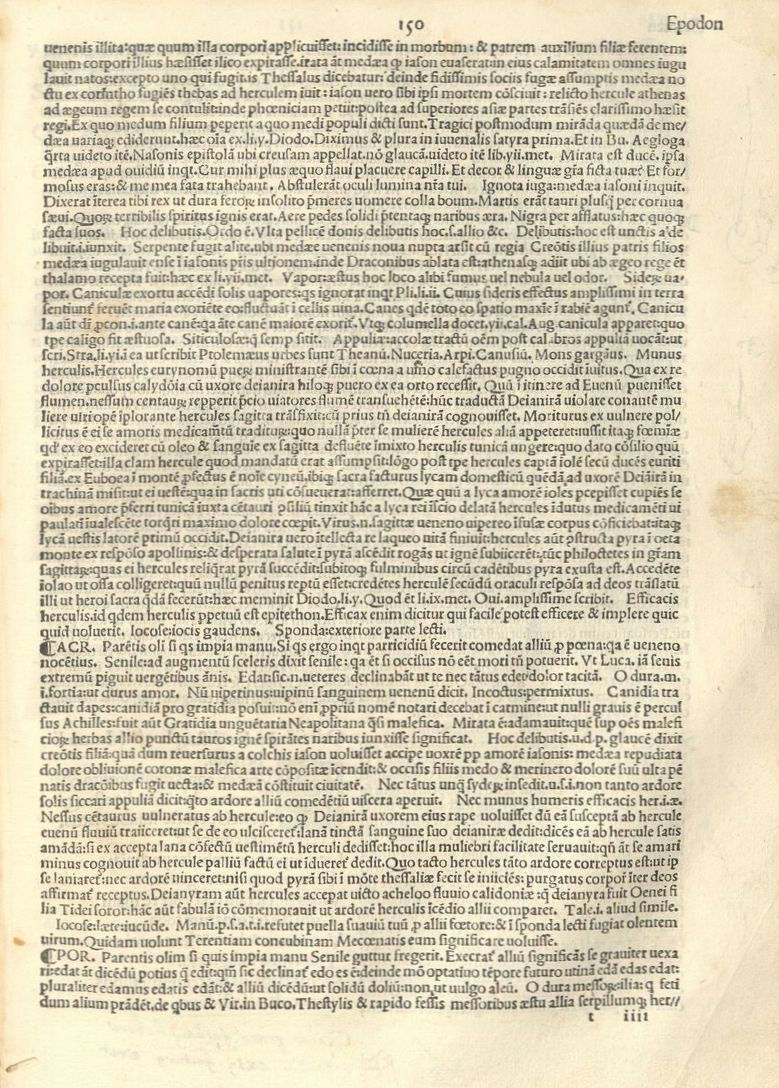 150
Epodon
uenenis illita:quæ quum illa corpori applicuisset: incidisse in morbum: & patrem auxilium filiæ ferentem:
quum corpori illius hæsisset ilico expirasse.irata āt medæa ꝙ iason euaserat:in eius calamitatem omnes iugu
lauit natos:excepto uno qui fugit.is Thessalus dicebatur: deinde fidissimis sociis fugæ assumptis medæa no
ctu ex corintho fugiēs thebas ad herculem iuit: iason uero sibi ipsi mortem cōsciuit: relicto hercule athenas
ad ægeum regem se contulit:inde phœniciam petiit:postea ad superiores asiæ partes trāsiēs clarissimo hæsit
regi.Ex quo medum filium peperit a quo medi populi dicti sunt.Tragici postmodum mirāda quædā de me/
dæa uariaꝗ ediderunt.hæc oīa ex.li.y.Diodo.Diximus & plura in iuuenalis satyra prima.Et in Bu. Aegloga
q̄rta uideto itē.Nasonis epistolā ubi creusam appellat.nō glaucā.uideto itē lib.yii.met. Mirata est ducē. ipsa
medæa apud ouidiū inqt. Cur mihi plus æquo flaui placuere capilli. Et decor & linguæ gr̄a ficta tuæ? Et for/
mosus eras: & me mea fata trahebant. Abstulerāt oculi lumina nr̄a tui. Ignota iuga: medæa iasoni inquit.
Dixerat īterea tibi rex ut dura feroꝝ insolito p̄meres uomere colla boum. Martis erāt tauri plusq̄ per cornua
sæui.Quoꝝ terribilis spiritus ignis erat.Aere pedes solidi p̄tentaꝗ naribus æra. Nigra per afflatus: hæc quoꝗ
facta suos. Hoc delibutis.Ordo ē.Vlta pellicē donis delibutis hoc.s.allio &c. Delibutis: hoc est unctis a'de
libuit.i.iunxit. Serpente fugit alite.ubi medæe uenenis noua nupta arsit cū regia Creōtis illius patris filios
medæa iugulauit ense ī iasonis p̄ris ultionem:inde Draconibus ablata est:athenasꝗ adiit ubi ab ægeo rege ēt
thalamo recepta fuit:hæc ex li.yii.met. Vapor:æstus hoc loco alibi fumus uel nebula uel odor. Sideꝝ ua/
por. Caniculæ exortu accēdi solis uapores:qs ignorat inqt Pli.li.ii. Cuius sideris effectus amplissimi in terra
sentiunt̄ feruēt maria exoriēte eo:fluctuāt ī cellis uina. Canes qdē toto eo spatio maxīe ī rabiē agunt̄. Canicu
la aūt dr̄ ꝓcon.i.ante canē:qa āte canē maiorē exorit̄. Vtꝗ columella docet.yii.cal.Aug.canicula apparet:quo
tpe caligo fit æstuosa. Siticulosæ:q̄ semp sitit. Appuliæ:accolæ tractū oēm post calabros appuliā uocāt:ut
scri.Stra.li.yi.ī ea ut scribit Ptolemæus urbes sunt Theanū.Nuceria.Arpi.Canusiū. Mons gargāus. Munus
herculis.Hercules eurynomū pueꝝ ministrantē sibi ī cœna a uīno calefactus pugno occidit iuitus. Qua ex re
dolore pculsus calydōia cū uxore deianira hiloꝗ puero ex ea orto recessit. Quū ī itinere ad Euenū puenisset
flumen.nessum centauꝝ repperit p̄cio uiatores flumē transuehētē:hūc traductā Deianirā uiolare conantē mu
liere uitiopē īplorante hercules sagitta trāsfixit:cū prius tn̄ deianirā cognouisset. Moriturus ex uulnere pol/
licitus ē ei se amoris medicamētū traditurꝝ:quo nullā p̄ter se mulierē hercules aliā appeteret:iussit itaꝗ fœmīæ
qd̓ ex eo excideret cū oleo & sanguīe ex sagitta defluēte īmixto herculis tunicā ungere:quo dato cōsilio quū
expirasset:illa clam hercule quod mandatū erat assumpsit:lōgo post tpe hercules captā iolē secū ducēs euriti
filiā.ex Euboea ī montē ꝓfectus ē noīe cyneū.ibiꝗ sacra facturus lycam domesticū quēdā.ad uxorē Deiāirā in
trachinā misit:ut ei uestē:qua in sacris uti cōsueuerat:afferret.Quæ quū a lyca amorē ioles pcepisset cupiēs se
oībus amore p̄ferri tunicā iuxta cētauri ꝓsiliū tinxit hāc a lyca rei īscio delatā hercules īdutus medicamēti ui
paulatī iualescēte torq̄ri maximo dolore cœpit. Virus.n.sagittæ ueneno uipereo īfusæ corpus cōficiebat:itaꝗ
lycā uestis latorē primū occidit.Deianira uero ītellecta re laqueo uitā finiuit:hercules aūt ꝓstructa pyra ī oeta
monte ex respōso apollinis:& desperata salute ī pyrā ascēdit rogās ut ignē subiicerēt:tūc philoctetes in gr̄am
sagittaꝝ:quas ei hercules reliq̄rat pyrā succēdit:subitoꝗ fulminibus circū cadētibus pyra exusta est.Accedēte
iolao ut ossa colligeret:quū nullū penitus reptū esset:credētes herculē secūdū oraculi respōsa ad deos trāslatū
illi ut heroi sacra q̄dā fecerūt:hæc meminit Diodo.li.y. Quod ēt li.ix.met. Oui.amplissime scribit. Efficacis
herculis.id qdem herculis ppetuū est epitethon.Efficax enim dicitur qui facile potest efficere & implere quic
quid uoluerit. Iocose:iocis gaudens. Sponda:exteriore parte lecti.
¶ACR. Parētis oli si qs impia manu.Si qs ergo inqt parricidiū fecerit comedat alliū ꝓ pœna:qa ē ueneno
nocētius. Senile:ad augmentū sceleris dixit senile: qa ēt si occisus nō eēt mori tn̄ potuerit. Vt Luca. iā senis
extremū piguit uergētibus ānis. Edat:sic.n.ueteres declinabāt ut te nec tātus edet dolor tacitā. O dura.m.
i.fortia:ut durus amor. Nū uiperinus:uipinū sanguinem uenenū dicit. Incoctus:permixtus. Canidia tra
ctauit dapes:canidiā pro gratidia posuit:nō enī ꝓpriū nomē notari decebat ī carmine:ut nulli grauis ē percul
sus Achilles:fuit aūt Gratidia unguētaria Neapolitana q̄si malefica. Mirata ē:adamauit:quē sup oēs malefi
cioꝝ herbas allio punctū tauros ignē spirātes naribus iunxisse significat. Hoc delibutis.u.d.p. glaucē dixit
creōtis filiā:quā dum reuersurus a colchis iason uoluisset accipe uoxrē pp amorē iasonis: medæa repudiata
dolore obliuionē coronæ malefica arte cōpositæ īcendit:& occisis filiis medo & merinero dolorē suū ulta pē
natis dracōibus fugit uecta:& medæā cōstituit ciuitatē. Nec tātus unq̄ sydeꝝ insedit.u.s.i.non tanto ardore
solis siccari appuliā dicit:q̄to ardore alliū comedētiū uiscera aperuit. Nec munus humeris efficacis her.i.æ.
Nessus cētaurus uulneratus ab hercule:eo ꝙ Deianirā uxorem eius rape uoluisset dū eā susceptā ab hercule
euenū fluuiū traiiceret:ut se de eo ulcisceret̄:lanā tinctā sanguine suo deianiræ dedit:dicēs eā ab hercule satis
amādā:si ex accepta lana cōfectū uestimētū herculi dedisset:hoc illa muliebri facilitate seruauit:qn̄ āt se amari
minus cognouit ab hercule palliū factū ei ut īdueret̄ dedit.Quo tacto hercules tāto ardore correptus est:ut ip
se laniaret̄:nec ardorē uinceret:nisi quod pyrā sibi ī mōte thessaliæ fecit se iniiciēs: purgatus corpor̄ īter deos
affirmat̄ receptus. Deianyram aūt hercules accepat uicto acheloo fluuio calidoniæ :q̄ deianyra fuit Oenei fi
lia Tidei soror:hāc aūt fabulā iō cōmemorauit ut ardorē herculis īcēdio allii comparet. Tale.i. aliud simile.
Iocose:læte:iucūde. Manū.p.s.a.t.i.refutet puella suauiū tuū ꝓ allii fœtore:& ī sponda lecti fugiat olentem
uirum.Quidam uolunt Terentiam concubinam Mecœnatis eum significare uoluisse.
¶POR. Parentis olim si quis impia manu Senile guttur fregerit. Execrat̄ alliū significās se grauiter uexa
ri:edat āt dicēdū potius q̄ edit:qm̄ sic declinat̄ edo es ē:deinde mō optatiuo tēpore futuro utinā edā edas edat:
pluraliter edamus edatis edāt:& alliū dicēdū:ut solidū doliū:non,ut uulgo aleū. O dura messoꝝ:ilia: q feti
dum alium prādēt.de qbus & Vir.in Buco.Thestylis & rapido fessis messoribus æstu allia serpillumꝗ her//
t iiii